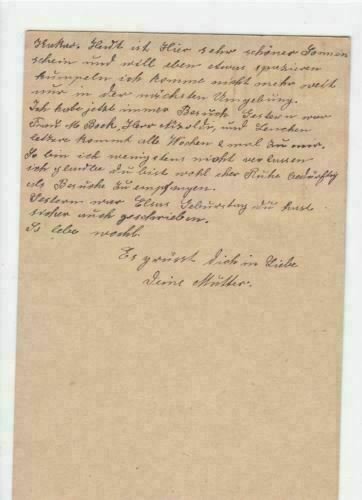 Heute ist Hier sehr schöner Sonnen
schein und will eben etwas spazieren
humpeln ich komme nicht mehr weit
nur in der nächsten Umgebung.
Ich habe jetzt immer Besuch Gestern war
Frau M Bock, Herr und Lenchen
letzre kommt alle Wochen 2 mal zu mir.
So bin ich wenigstens nicht verlassen
ich glaube du bist wohl eher Ruhe bedürftig
als Besuche zu empfangen.
Gestern war Elsas Geburtstag du hast
sicher auch geschrieben.
So lebe wohl.
Es grüsst Dich in Liebe
Deine Mutter.